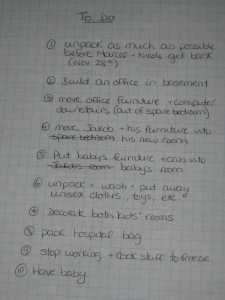 To Do
① unpack as much as possible
before Marcel + Nicole get back
(Nov 28th)
② Build an office in basement
③ move office furniture + computer
downstairs (out of spare bedroom)
④ move Jakob + his furniture into
spare bedroom his new room
⑤ Put baby's furniture + crib into
Jakob's room baby's room
⑥ unpack + wash + put away
unisex cloths, toys, etc.
⑦ Decorate both kids' rooms
⑧ pack hospital bag
⑨ stop working + cook stuff to freeze
⑩ Have baby